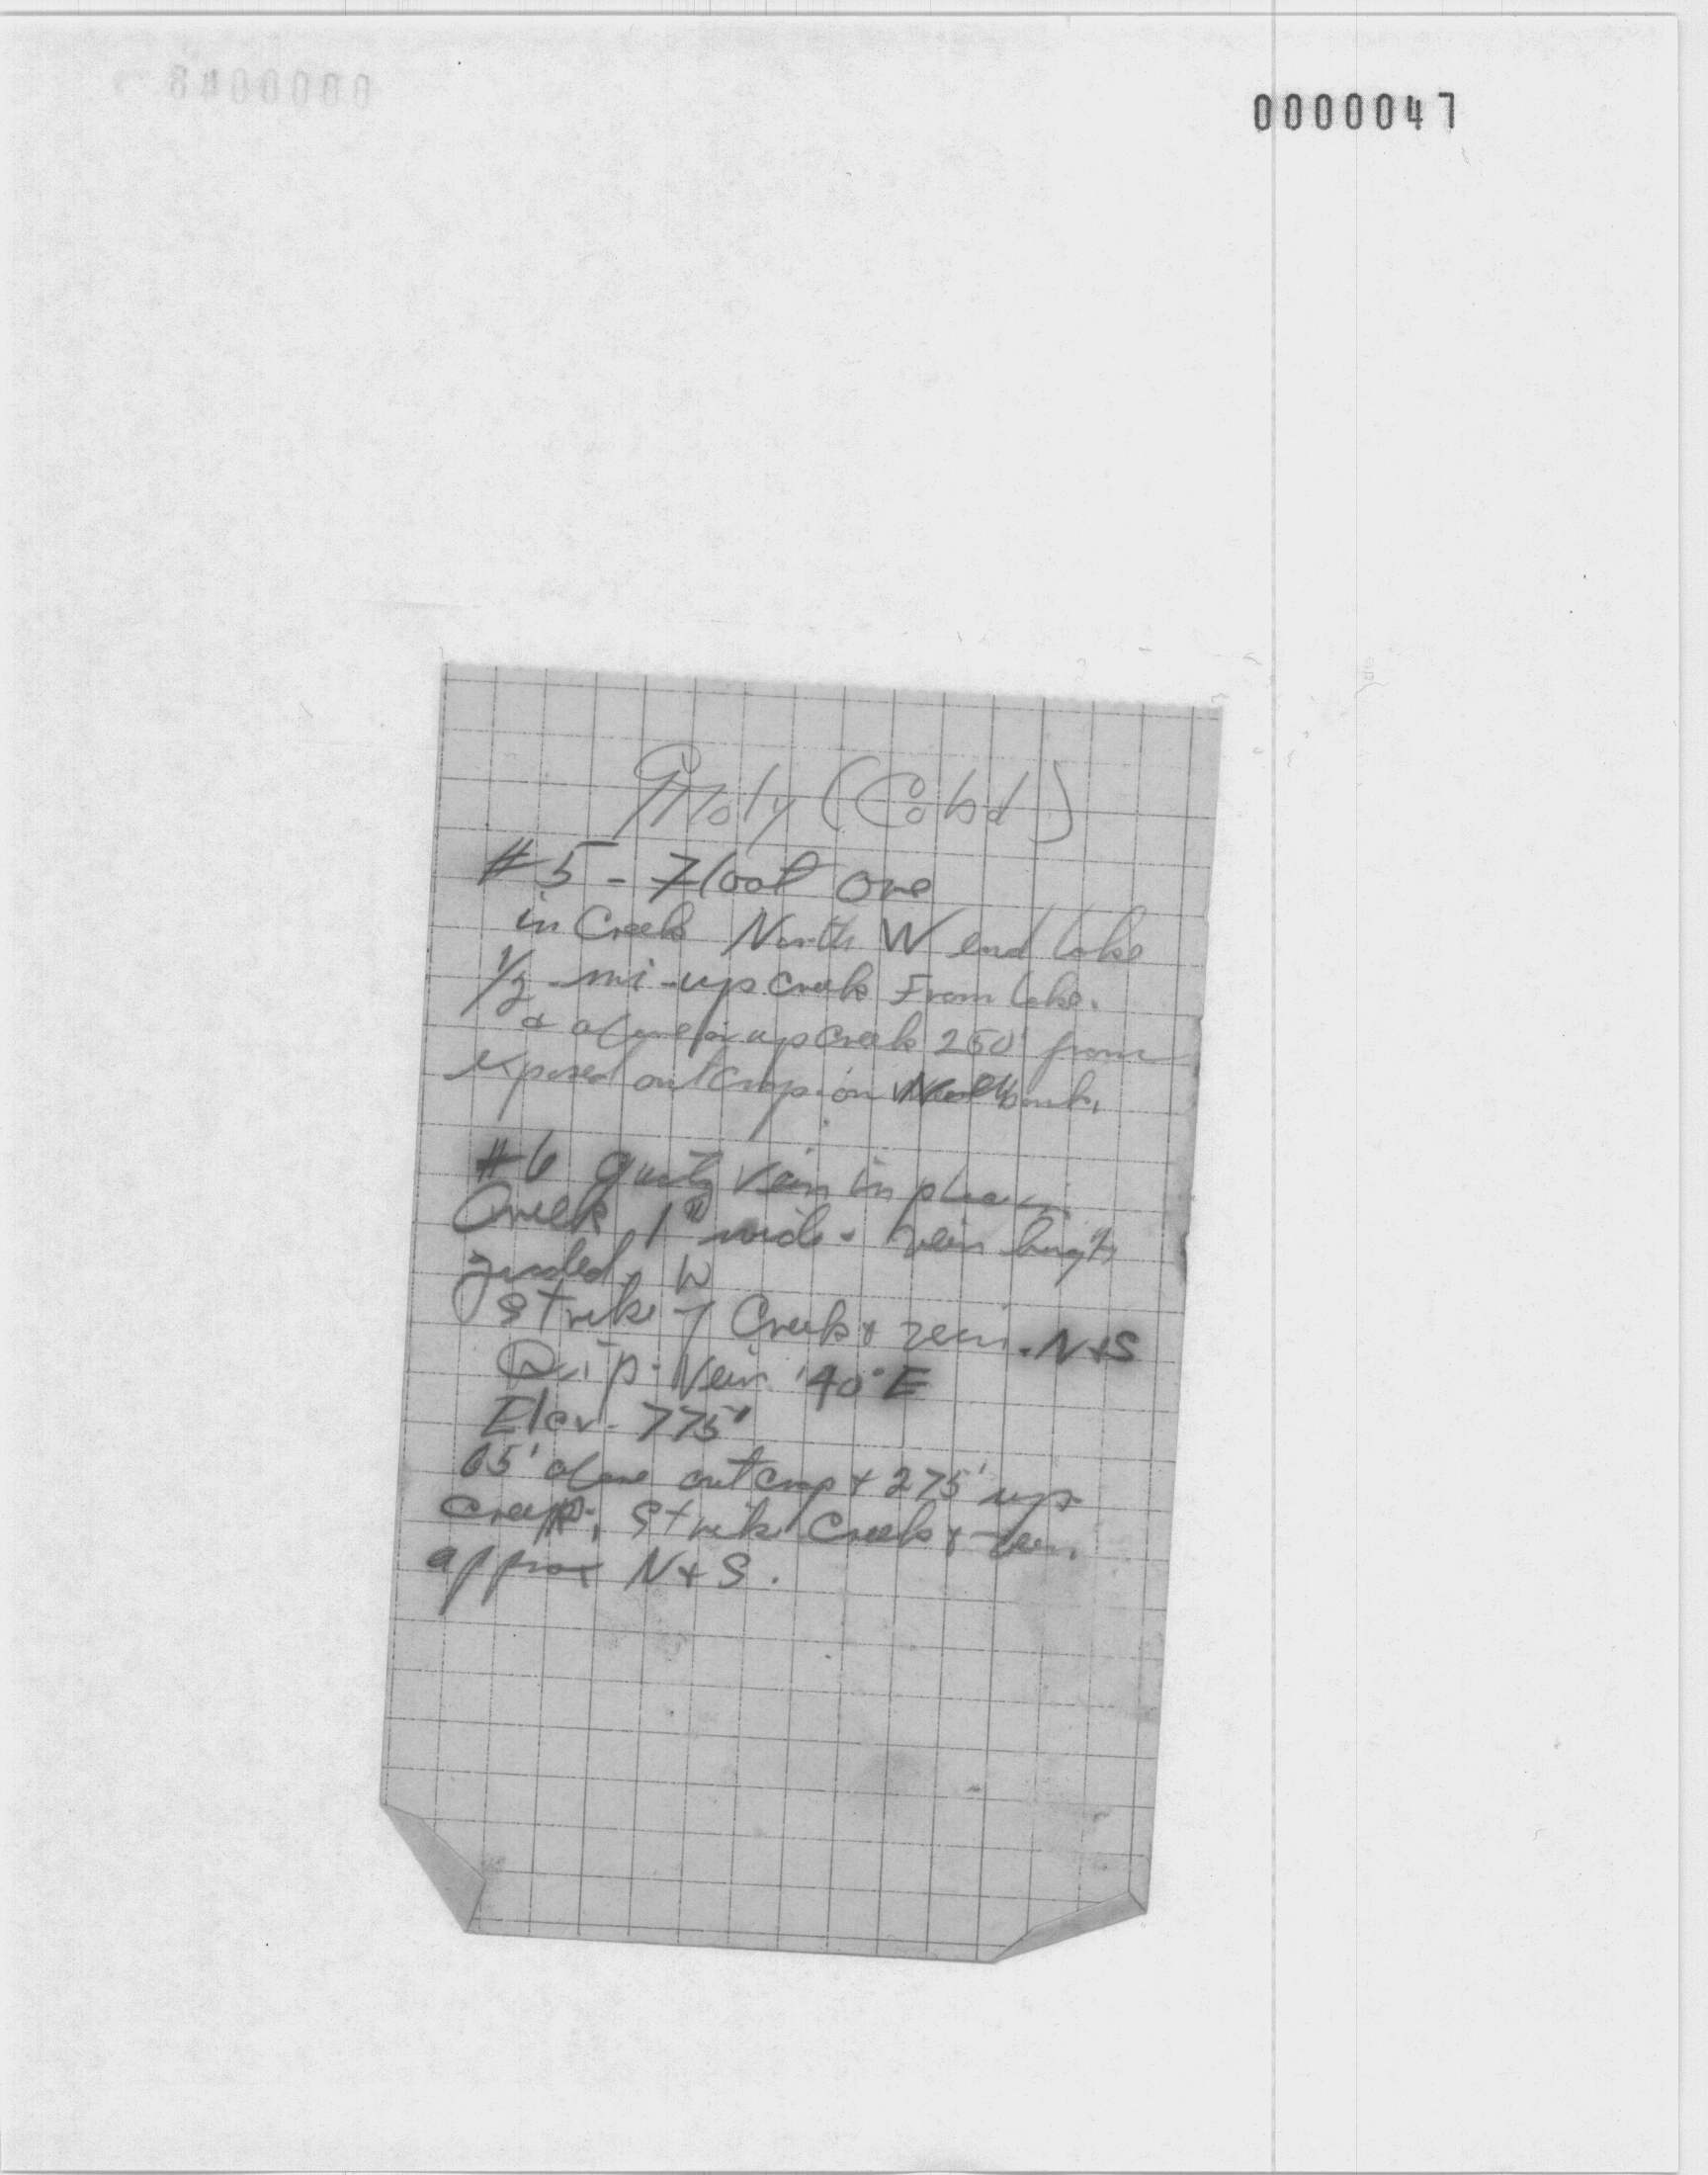 0000047
Moly (Cobd)
#5 - Float ore
in Creek North W end Lake
1/2 - mi - up creek From lake.
& above or up creek 250' from
exposed outcrop on bank.
#6 quartz vein in place in
Creek 1" wide - vein
W
strike of Creek & vein - N & S
Dip - Vein 40° E
Elev - 775'
65' above outcrop & 275' up
creek, Strike Creek & vein
approx N & S.